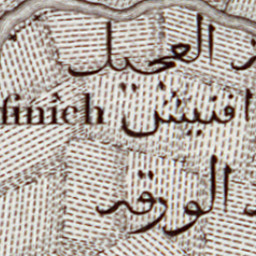 العجيل
finîch افنيش
الورقه